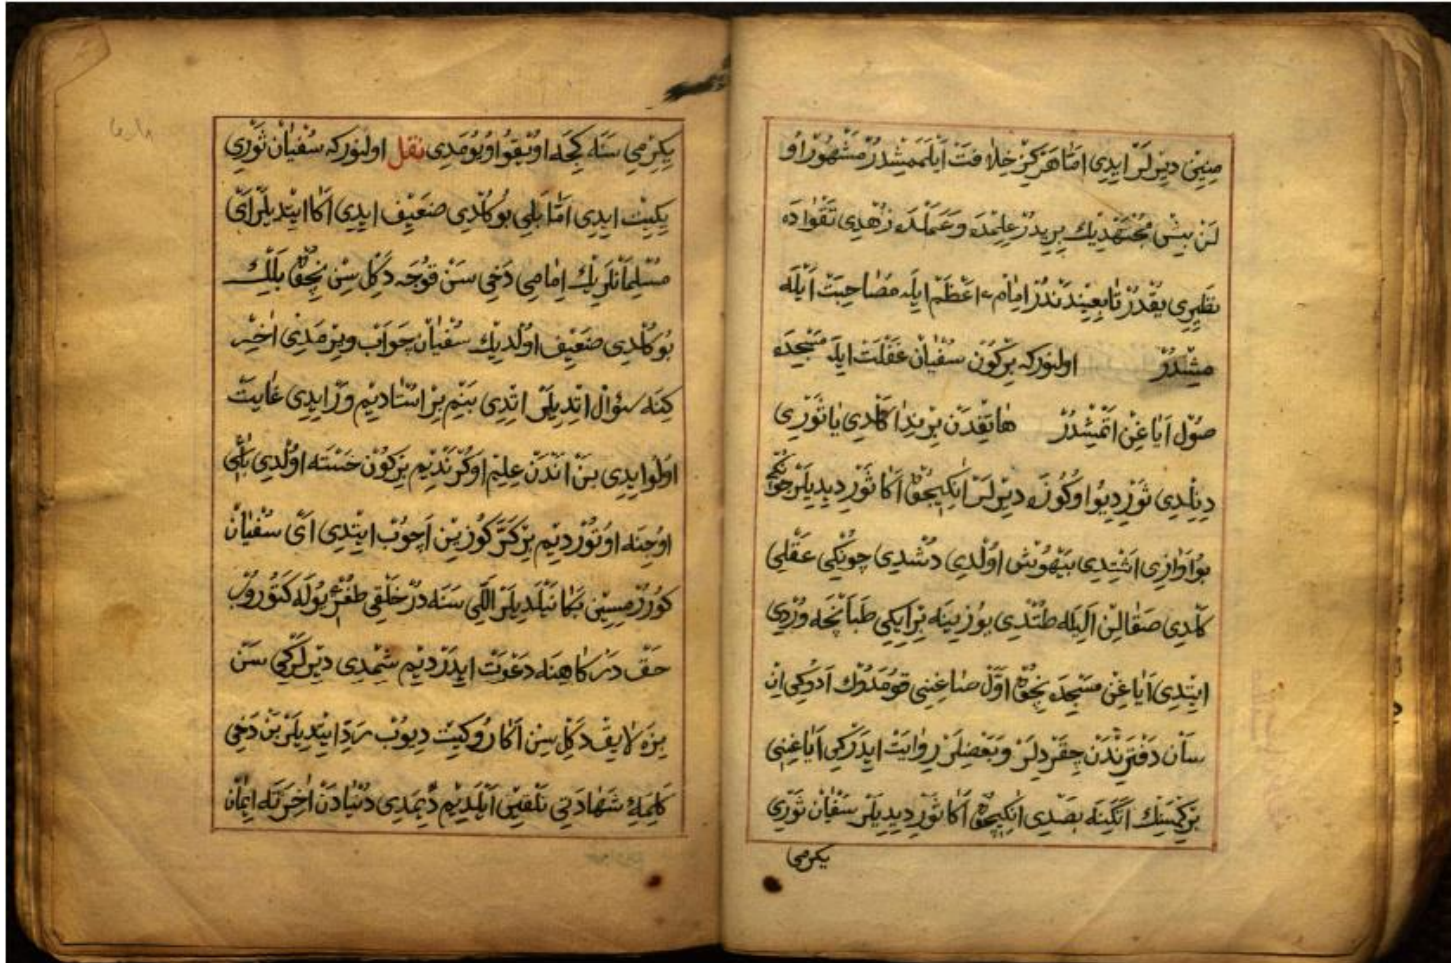 مِنِينْ دِيرْلَرْ اِيدِى اَمَّا هَرْكِزْ خِلَافَتْ اَيْلَمَمِشْدُرْ مَشْهُورْ اوُ
لَنْ بِيشْ مُجْتَهِدِيكْ بِرِيدُرْ عِلِمْدَه وَعَمَلْدَه زُهْدِى تَقْوَادَه
نظَيِرِى يُقْدُرْ تَابِعِينْدَنْدُرْ اِمَامِ اَعْظَمْ اِيلَه مُصَاحِبَتْ اَيْلَه
مِشْدُرْ اولنوركه بِرْكوُنْ سُفْيَانْ غَفْلَتْ ايلَه مَسْجِدَه
صوُلْ اَيَاغِنْ اَتْمِشْدُرْ هَاتِفْدَنْ بِرْ نِدَا كَلْدِى يَا ثَوْرِى
دِنِلْدِى ثَوْرْ دِيوُ اوكُوزَه دِيرْلَرْ اَنِكِيچُونْ اَكَا ثَوْرْ دِيدِيلَرْ چونكه
بوُ اَوَازِى اِشْتِدِى بِيْهُوشْ اوُلْدِى دُشْدِى چوُنْكِى عَقْلِى
كَلْدِى صَقَالِنْ اَلِيلَه طُتْدِى يوُزِينَه بِرْ اِيكِى طَبَانْچَه وُرْدِى
ايتْدِى اَيَاغِنْ مَسْجِدَه نِچُونْ اَوَّلْ صَاغِنِى قوُمَدُوكْ اَدوُكِى اِنْ
سَانْ دَفْتَرِنْدَنْ چِقَرْدِلَرْ وَبَعْضِلَرْ رِوَايَتْ ايدَرْكِى اَيَاغِنِى
بِرْ كِيسَنِكْ اَكِينَه بَصْدِى اَنِكِيچُونْ اَكَا ثَوْرْ دِيدِيلَرْ سُفْيَانْ ثَوْرِى
يكرمى
يِكِرْمِى سَنَه كِيجَه اوُيْقوُ اوُيوُمَدِى نقل اولنوركه سُفْيَانْ ثَوْرِى
يِكِيتْ ايدِى اَمَّا بَلِى بوُكُلْدِى ضَعِيفْ ايدِى اَكَا ايتْدِيلَرْ اَىْ
مُسْلِمَانْلَرِيكْ اِمَامِى دَخِى سَنْ قوُجَه دَكِلْ سِنْ نِچُونْ بَلِكْ
بوُكُلْدِى ضَعِيفْ اوُلْدِيكْ سُفْيَانْ جَوَابْ وِيرْمَدِى اَخِرْ
كِنَه سُؤالْ اتْدِيلَرْ اتْدِى بَنِيمْ بِرْ اُسْتَادِيمْ وَرْ ايدِى غَايَتْ
اوُلوُ ايدِى بَنْ اَنْدَنْ عِلِمْ اوكْرَنْدِيمْ بِرْكوُنْ خَسْتَه اوُلْدِى بَاشِى
اوُجِنَه اوُتوُرْدِيمْ بِرْ كَزْ كوُزْلَرِينْ اَچوُبْ ايتْدِى اَىْ سُفْيَانْ
كوُرُرْمِسِينْ بَكَا نَيْلَدِيلَرْ اَللِّى سَنَه دُرْ خَلْقِى طُغْرُ يوُلَه كَتوُرُوبْ
حَقْ دَرْكَاهِنَه دَعْوَتْ ايدَرْدِيمْ شِمْدِى دِيرْلَرْكِى سَنْ
بِزَه لَايِقْ دَكِلْ سِنْ اَكَارُو كِيتْ دِيوُبْ رَدِّ ايتْدِيلَرْ بَنْ دَخِى
كَلِمَهِٔ شَهَادَتِى تَلْقِينْ اَيْلَدِيمْ دِيمَدِى دُنْيَادَنْ اَخِرَتَه اِيمَانْ